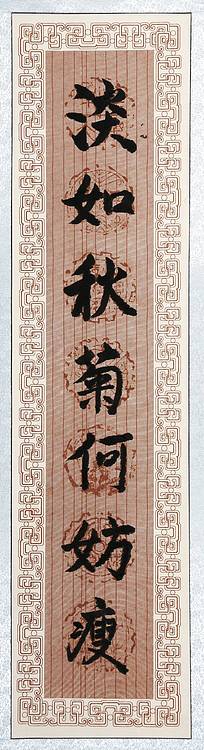 淡如秋菊何妨瘦